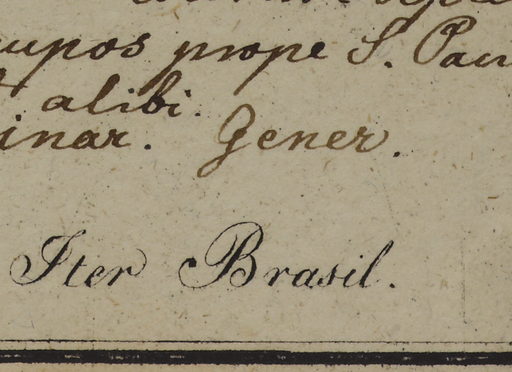 prope S. Pau
alibi.
inar. Gener.
Iter Brasil.